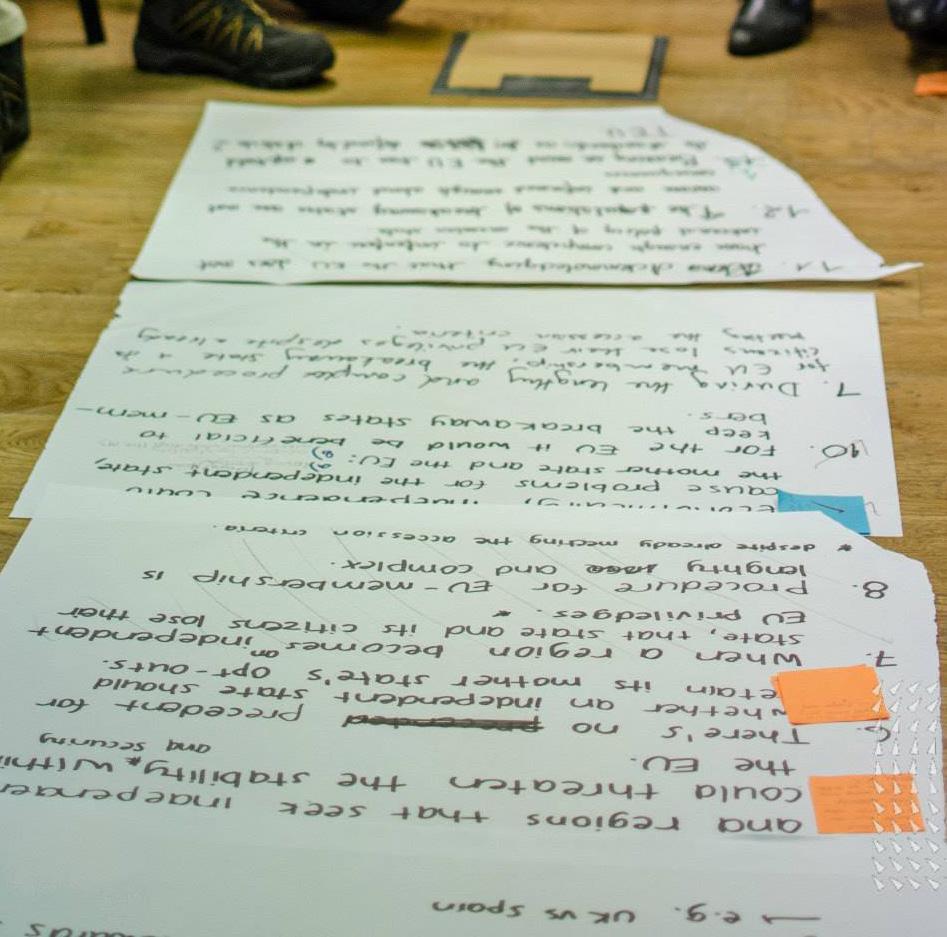 → e.g. UK vs Spain
and regions that seek
could threaten the stability, within
and security
the EU.
6. There's no precedent for
whether an independent state should
retain its mother state's opt-outs.
7. When a region becomes an independent
state, that state and its citizens lose their
EU priviledges. *
8. Procedure for EU-membership is
lenghty and complex.
* despite already meeting the accession criteria.
independence could
cause problems for the independent state,
the mother state and the EU:
10. For the EU it would be beneficial to
keep the breakaway states as EU-mem-
bers.
7. During the lengthy and complex procedure
for EU membership, the breakaway state + its
citizens lose their EU privileges despite already
meeting the accession criteria.
11. Acknowledging that the EU does not
have enough competence to interfere in the
internal policy of the member state
12. The populations of breakaway states are not
aware and informed enough about independence
consequences
Bearing in mind the EU has to uphold
its standards as defined by article 2
TEU